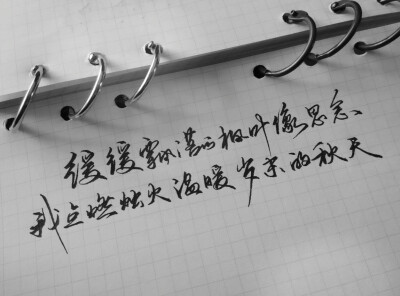 缓缓飘落的枫叶像思念、
我点燃烛火温暖岁末的秋天